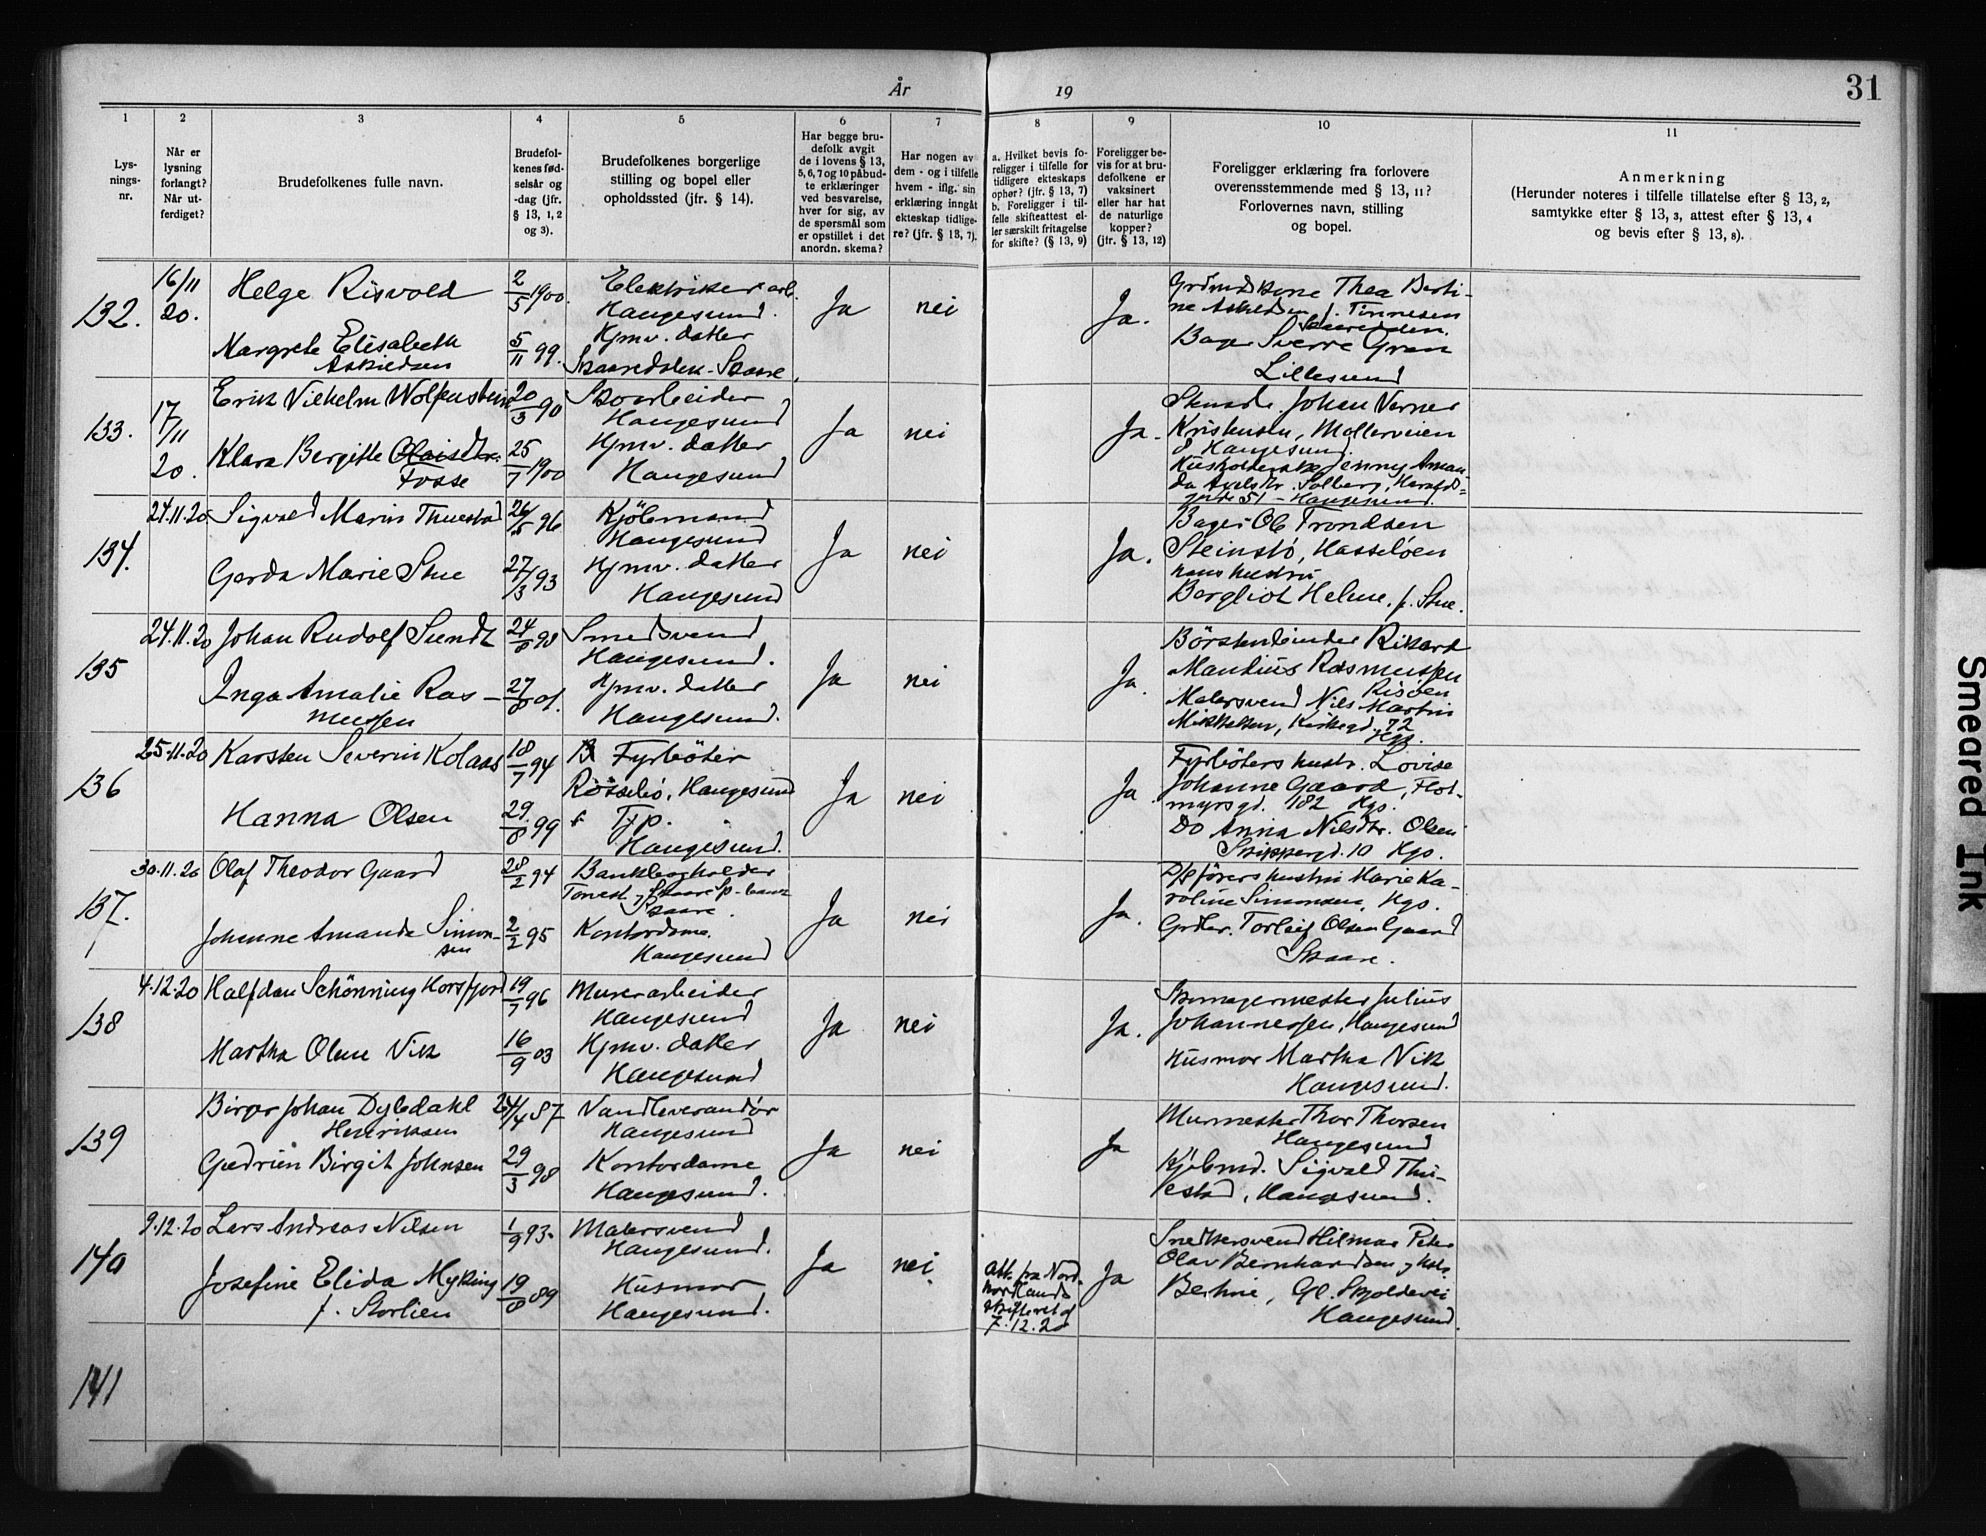 År 19
31
1 2 3 4 5 6 7 8 9 10 11
Lys-
nings-
nr.
Når er
lysning
forlangt?
Når ut-
ferdiget?
Brudefolkenes fulle navn.
Brudefol-
kenes fød-
selsår og
-dag (jfr.
§ 13, 1, 2
og 3).
Brudefolkenes borgerlige
stilling og bopel eller
opholdssted (jfr. § 14).
Har begge bru-
defolk avgit
de i lovens § 13,
5, 6, 7 og 10 påbud-
te erklæringer
ved besvarelse,
hver for sig, av
de spørsmål som
er opstillet i det
anordn. skema?
Har nogen av
dem - og i tilfelle
hvem - iflg. sin
erklæring inngåt
ekteskap tidlige-
re? (jfr. § 13, 7).
a. Hvilket bevis fo-
religger i tilfelle for
tidligere ekteskaps
ophør? (jfr. § 13, 7)
b. Foreligger i til-
felle skifteattest el-
ler særskilt fritagelse
for skifte? (§ 13, 9)
Foreligger be-
vis for at bru-
defolkene er
vaksinert
eller har hat
de naturlige
kopper?
(jfr. § 13, 12)
Foreligger erklæring fra forlovere
overensstemmende med § 13, 11?
Forlovernes navn, stilling
og bopel.
Anmerkning
(Herunder noteres i tilfelle tillatelse efter § 13, 2,
samtykke efter § 13, 3, attest efter § 13, 4
og bevis efter § 13, 8).
132.
16/11
20.
Helge Risvold
2/5 1900.
Elektriker arb.
Haugesund.
Margrete Elisabeth
Askildsen
5/11 99.
Hjmv. datter
Skaaredalen - Skaare
Ja
nei
Ja.
Thea Berti-
ne Askildsen f. Tinnesen
Skaaredalen.
Bager Sverre Gran
Lillesund
133.
17/11
20.
Erik Vilhelm Wolfenstein
20/3 90
Skoarbeider
Haugesund
Klara Bergitte Olaisdtr.
Fosse
25/7 1900
Hjmv. datter
Haugesund
Ja
nei
Ja.
Johan Verner
Kristensen, Møllerveien
8 Haugesund.
Husholderske Jenny Aman-
da Axelsdtr. Solberg, Haralds-
gade 51 - Haugesund.
134.
24.11.20
Sigvald Marin Thuestad
26/5 96
Kjöbmand
Haugesund
Gerda Marie Stue
27/3 93
Hjmv. datter
Haugesund
Ja
nei
Ja.
Bager Ole Trondsen
Steinstö, Hasselöen
hans hustru
Bergliot Helene. f. Stue.
135
24.11.20
Johan Rudolf Sundt
24/8 98
Smedsvend
Haugesund.
Inga Amalie Ras-
mussen
27/8 01.
Hjmv. datter
Haugesund.
Ja
nei
Ja.
Börstenbinder Rikard
Mandius Rasmussen
Risöen
Malersvend Nils Martin
Mikkelsen, Kirkegd. 72
Hgs.
136
25.11.20
Karsten Severin Kolaas
18/7 94
B Fyrböter
Rossebö, Haugesund
Hanna Olsen
29/8 99
f Typ.
Haugesund.
Ja
nei
Ja
Fyrböters hustr. Lovise
Johanne Gaard, Flot-
myrsgd. 182 Hgs.
Do Anna Nilsdtr. Olsen
Skippergd. 10 Hgs.
137.
30.11.20
Olaf Theodor Gaard
28/2 94
Bankbogholder
Torvest. & Skaare Sp.-bank
Skaare.
Johanne Amanda Simon-
sen
2/2 95
Kontordame.
Haugesund
Ja
nei
Ja.
D/sförers hustru Marie Ka-
roline Simonsen, Hgs.
Grdbr. Torleif Olsen Gaard
Skaare.
138
4.12.20
Halfdan Schönning Korsfjord
19/7 96
Murerarbeider
Haugesund
Martha Olene Vik
16/9 03
Hjmv. datter
Haugesund
Ja
nei
Ja.
Skomagermester Julius
Johannessen, Haugesund
Husmor Martha Vik
Haugesund.
139
Birger Johan Dybdahl
Henriksen
24/4 87
Vandleverandør
Haugesund
Gudrun Birgit Johnsen
29/3 98
Kontordame
Haugesund.
Ja
nei
Ja
Murmester Thor Thorsen
Haugesund
Kjöbmd. Sigvald Thu-
estad, Haugesund.
140
9.12.20
Lars Andreas Nilsen
1/9 93.
Malersvend
Haugesund.
Josefine Elida Myking
f. Storlien
19/8 89
Husmor
Haugesund.
Ja
nei
Att. fra Nord-
hordlands
skifteret af
7.12.20
Ja
Snedkersvend Hilmar Peter
Olav Bernhardsen & hstr.
Bertine, Gl. Skjoldevei
Haugesund.
141
Smeared Ink